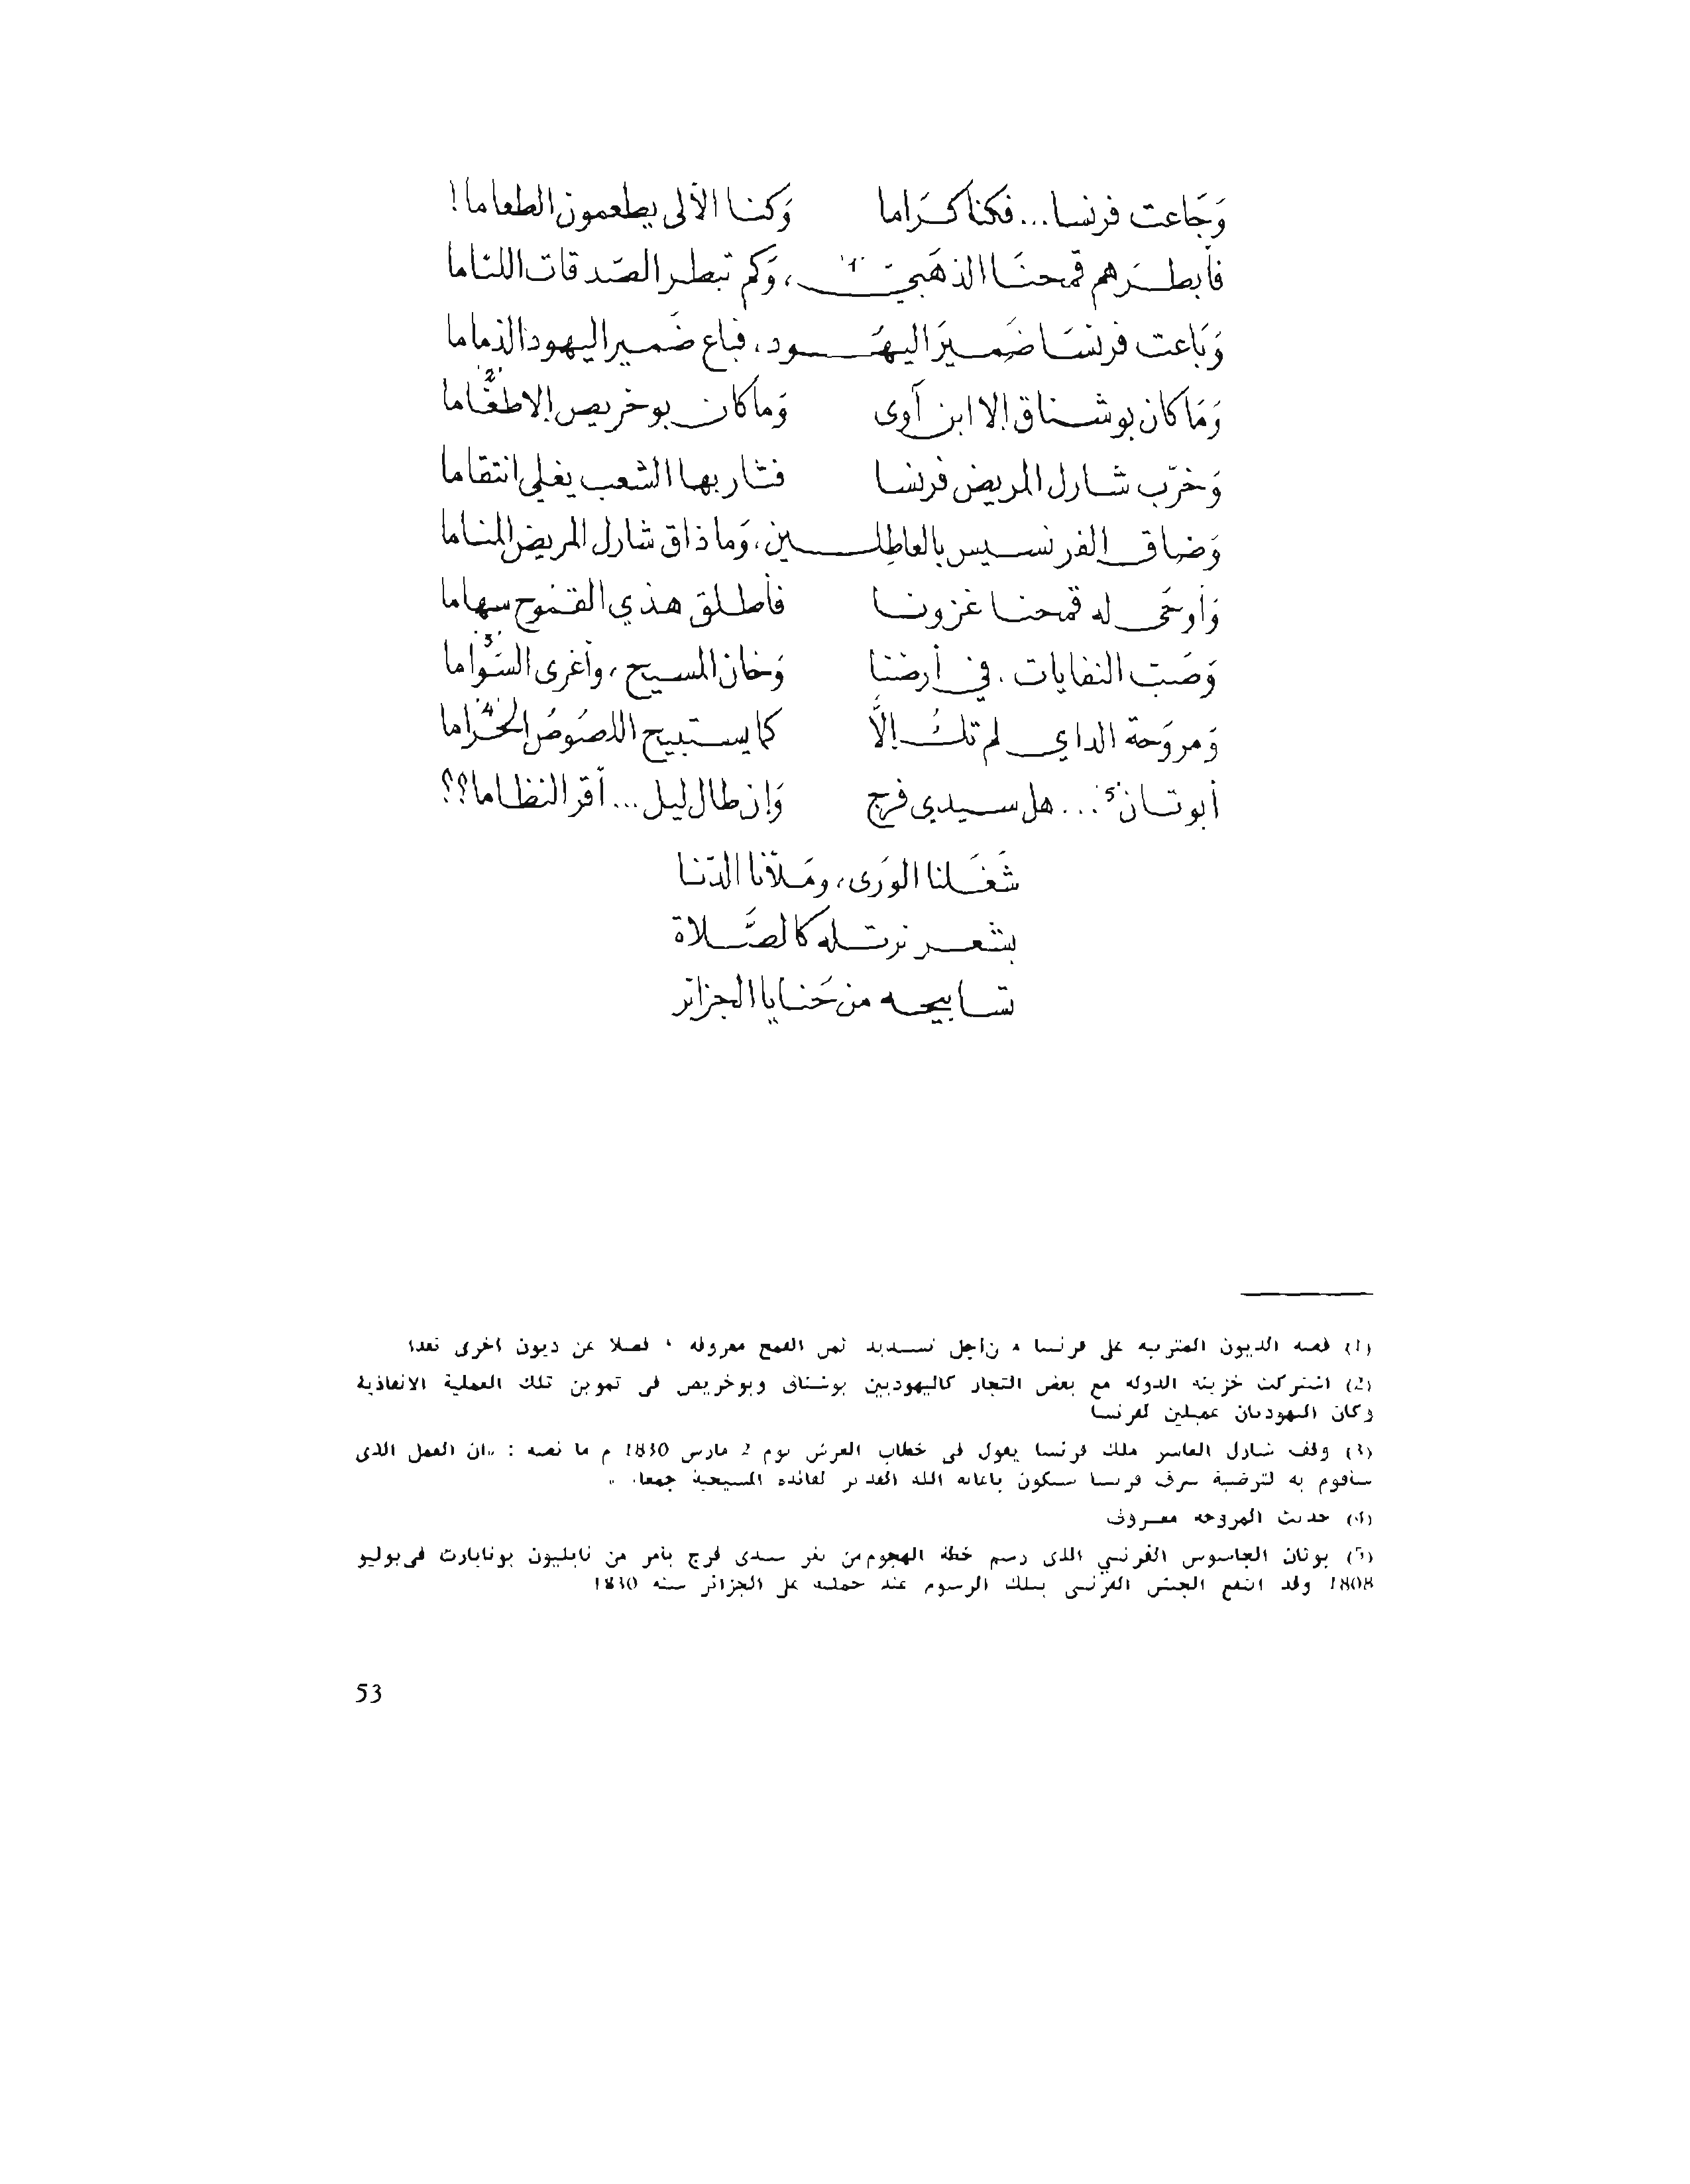 وَجَاعت فرنسا... فكنا كـرَاما وَكنـا الألى يطعمون الطعاما !
فأبطـرَهم قمحنَـا الذهَبيّ '1' ، وَكم تبطـر الصّدقات اللئاما
وَبَاعت فرنسَا ضَميرَ اليهَـود، فباع ضَميـر اليهود الذماما
وَمَا كان بوشـناق إلا ابن آوى وَما كان بوخريص إلا طغَّاما '2'
وَخرّب شـارل المريض فرنسا فثـار بها الشعب يغلي انتقاما
وَضاق الفرنسـيس بالعاطِلـين، وَما ذاق شارل المريض المناما
وَأوحَى له قمحنـا غزونـا فأطـلق هذي القـموح سهاما
وَصَبّ النفايات . في أرضنا وَخان المسـيح ، وأغرى السَوّاما '3'
وَمروَحة الداي لم تكُ إلَّا كما يسـتبيح اللصُوصُ الحَرَاما '4'
أبوتـان '5' ... هل سـيدي فرج وَإن طال ليل ... أقر النظاما؟؟
شَغَـلنا الورَى، ومَـلأنا الدّنـا
بشعـر نرتـله كالصَّـلاة
تسـابيحـه من حَنـايا الجزائر
(1) قصة الديون المترتبة على فرنسا من أجل تسـديد ثمن القمح معروفة ، فضلا عن ديون أخرى نقدا
(2) اشتركت خزينة الدولة مع بعض التجار كاليهوديين بوشناق وبوخريص في تموين تلك العملية الانقاذية
وكان اليهوديان عميلين لفرنسا
(3) وقف شارل العاشر ملك فرنسا يقول في خطاب العرش يوم 2 مارس 1830 م ما نصه : «ان العمل الذي
سأقوم به لترضية شرف فرنسا سيكون باعانة الله القدير لفائدة المسيحية جمعا. »
(4) حديث المروحة معـروف
(5) بوتان الجاسوس الفرنسي الذي رسم خطة الهجوم من ثغر سيدي فرج بأمر من نابليون بونابارت في يوليو
1808 وقد انتفع الجيش الفرنسي بتلك الرسوم عند حملته على الجزائر سنة 1830
53